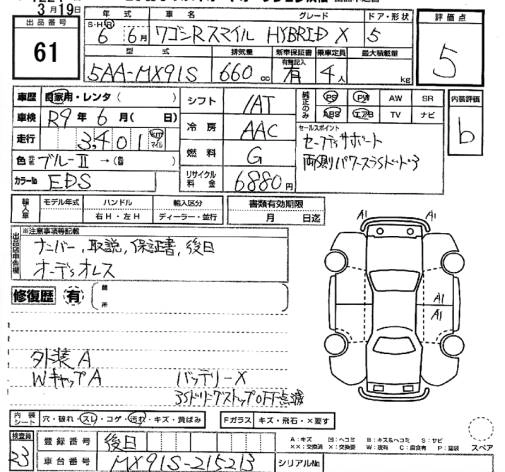 3月19日
出品番号 61
年式 車名 グレード ドア・形状 評価点
S・H・R 6年 6月 ワゴンRスマイル HYBRID X 5
5
型式 排気量 新車保証書 乗車定員 最大積載量
5AA-MX91S 660cc 有 4人 kg
車歴 自家用・レンタ( ) シフト IAT 純正のみ PS PW AW SR 内装評価
車検 R9年6月( 日) 冷房 AAC ABS エアB TV ナビ b
走行 3,401 km マイル セールスポイント
セーフティサポート
色 ブルーⅡ→( ) 燃料 G 両側パワースライドドア
カラーNo EDS リサイクル料金 6880円
輸入車 モデル年式 ハンドル 輸入区分 書類有効期限
右H・左H ディーラー・並行 月 日迄
※注意事項等記載
ナンバー,取説,保証書,後日
オーディオレス
修復歴 有 箇所
A1 A1
A1
A1
外装A
WキャップA バッテリーX
アイドリングストップOFF点滅
内装シート 穴・破れ・スレ・コゲ・汚れ・キズ・黄ばみ Fガラス キズ・飛石・X要す
検査員 23 登録番号 後日
A:キズ
スペア
車台番号 MX91S-215213 シリアルNo